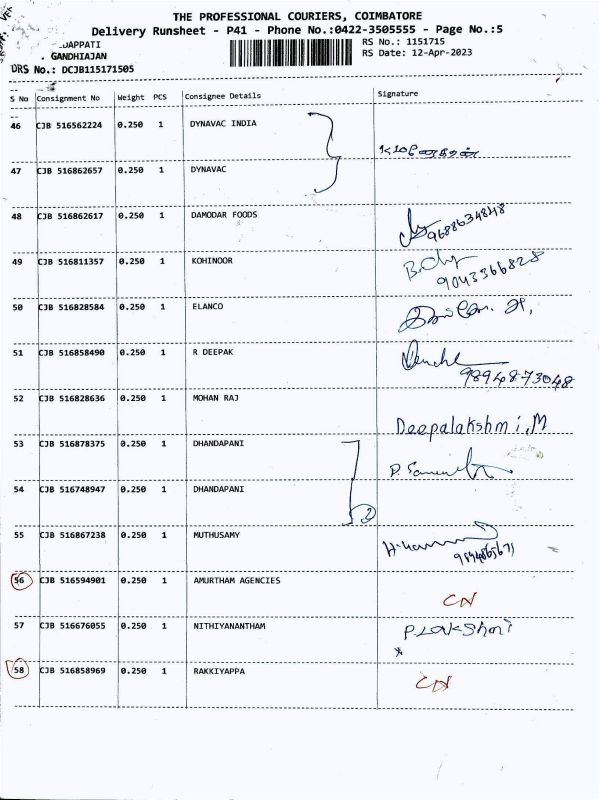 THE PROFESSIONAL COURIERS, COIMBATORE
Delivery Runsheet - P41 - Phone No.:0422-3505555 - Page No.:5
DAPPATI
RS No.: 1151715
. GANDHIAJAN
RS Date: 12-Apr-2023
DRS No.: DCJB115171505
S No Consignment No Weight PCS Consignee Details Signature
46 CJB 516562224 0.250 1 DYNAVAC INDIA
47 CJB 516862657 0.250 1 DYNAVAC
48 CJB 516862617 0.250 1 DAMODAR FOODS 9688634848
49 CJB 516811357 0.250 1 KOHINOOR 9043366828
50 CJB 516828584 0.250 1 ELANCO
51 CJB 516858490 0.250 1 R DEEPAK 9894873048
52 CJB 516828636 0.250 1 MOHAN RAJ Deepalakshmi.M
53 CJB 516878375 0.250 1 DHANDAPANI
54 CJB 516748947 0.250 1 DHANDAPANI 2
55 CJB 516867238 0.250 1 MUTHUSAMY
56 CJB 516594901 0.250 1 AMURTHAM AGENCIES CN
57 CJB 516676055 0.250 1 NITHIYANANTHAM P Lakshmi
58 CJB 516858969 0.250 1 RAKKIYAPPA CN